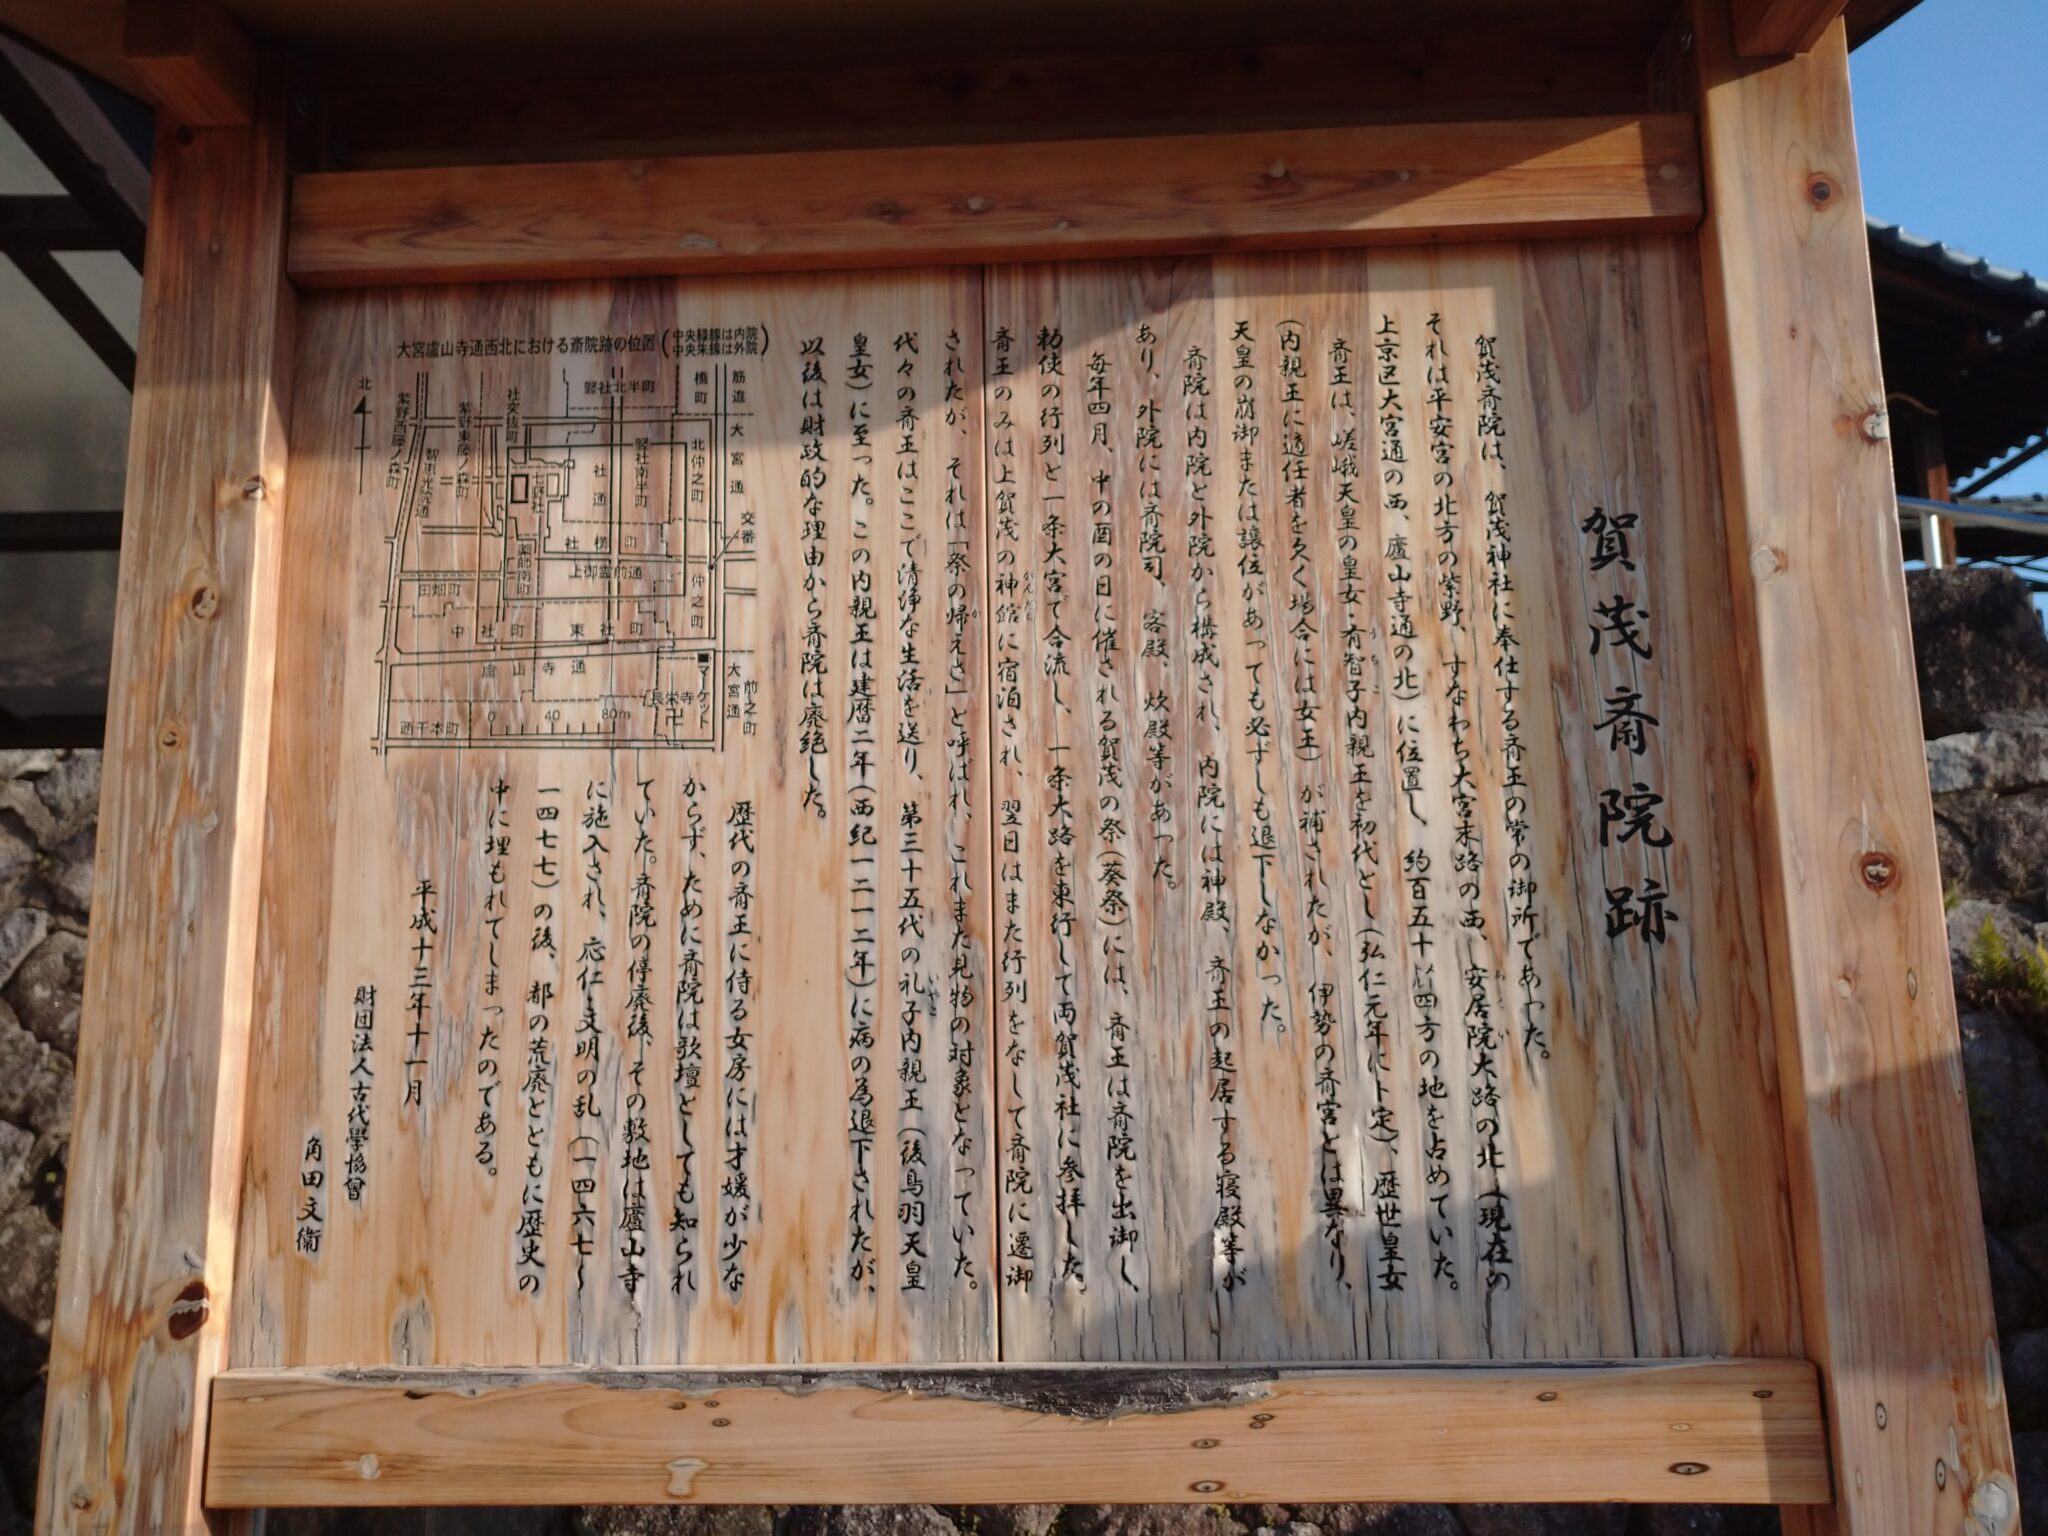 賀茂斎院跡
賀茂斎院は、賀茂神社に奉仕する斎王の常の御所であった。
それは平安宮の北方の紫野、すなわち大宮末路の西、安居院大路の北(現在の
上京区大宮通の西、廬山寺通の北)に位置し、約百五十㍍四方の地を占めていた。
斎王は、嵯峨天皇の皇女・有智子内親王を初代とし(弘仁元年に卜定)、歴世皇女
(内親王に適任者を欠く場合には女王)が補されたが、伊勢の斎宮とは異なり、
天皇の崩御または譲位があっても必ずしも退下しなかった。
斎院は内院と外院から構成され、内院には神殿、斎王の起居する寝殿等が
あり、外院には斎院司、客殿、炊殿等があった。
毎年四月、中の酉の日に催される賀茂の祭(葵祭)には、斎王は斎院を出御し、
勅使の行列と一条大宮で合流し、一条大路を東行して両賀茂社に参拝した。
斎王のみは上賀茂の神館に宿泊され、翌日はまた行列をなして斎院に還御
されたが、それは「祭の帰えさ」と呼ばれ、これまた見物の対象となっていた。
代々の斎王はここで清浄な生活を送り、第三十五代の礼子内親王(後鳥羽天皇
皇女)に至った。この内親王は建暦二年(西紀一二一二年)に病の為退下されたが、
以後は財政的な理由から斎院は廃絶した。
歴代の斎王に侍る女房には才媛が少な
からず、ために斎院は歌壇としても知られ
ていた。斎院の停廃後、その敷地は廬山寺
に施入され、応仁・文明の乱(一四六七~
一四七七)の後、都の荒廃とともに歴史の
中に埋もれてしまったのである。
平成十三年十一月
財団法人古代學協會
角田文衞
大宮盧山寺通西北における斎院跡の位置(中央緑線は内院 中央朱線は外院)
北
筋違大宮通
橋町
竪社北半町
社突抜町
紫野東藤ノ森町
紫野西藤ノ森町
智恵光院通
北仲之町
竪社南半町
社通
七野社
交番
社横町
上御霊前通
薬師南町
仲之町
田畑町
中社町
東社町
盧山寺通
マーケット
大宮通
前之町
長栄寺
卍
西千本町
0 40 80m